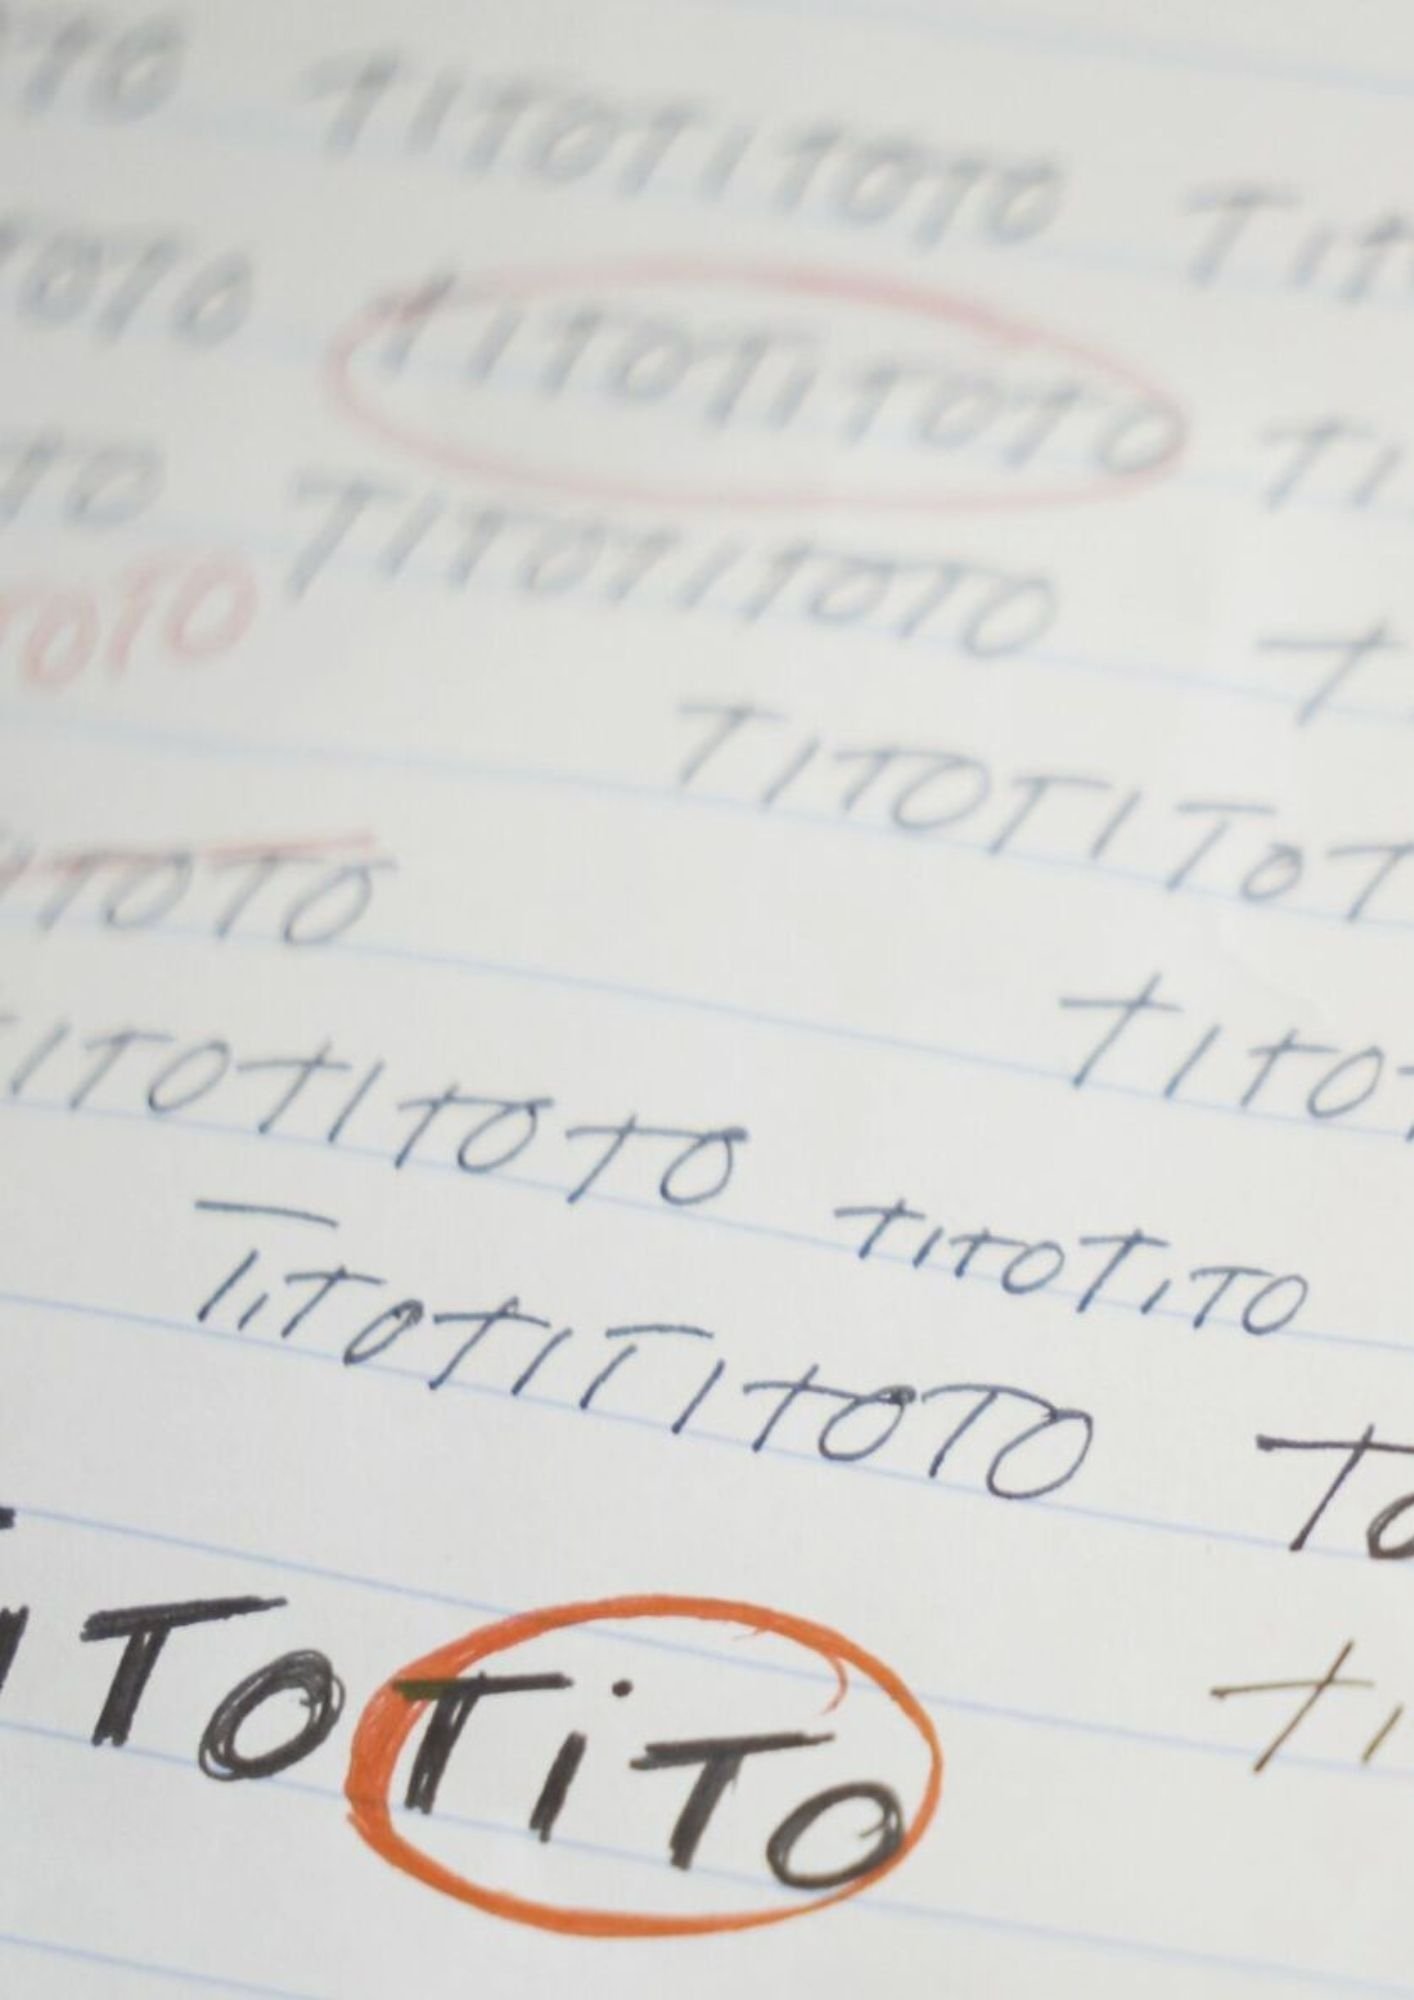 TO TITOTITOTO TIT
TOTO TITOTITOTO TI
TO TITOTITOTO T
TOTO
TITOTITOT
ITOTO
TITOT
ITOTITOTO TITOTITO
TiTOTITITOTO TO
ITOTiTO TI